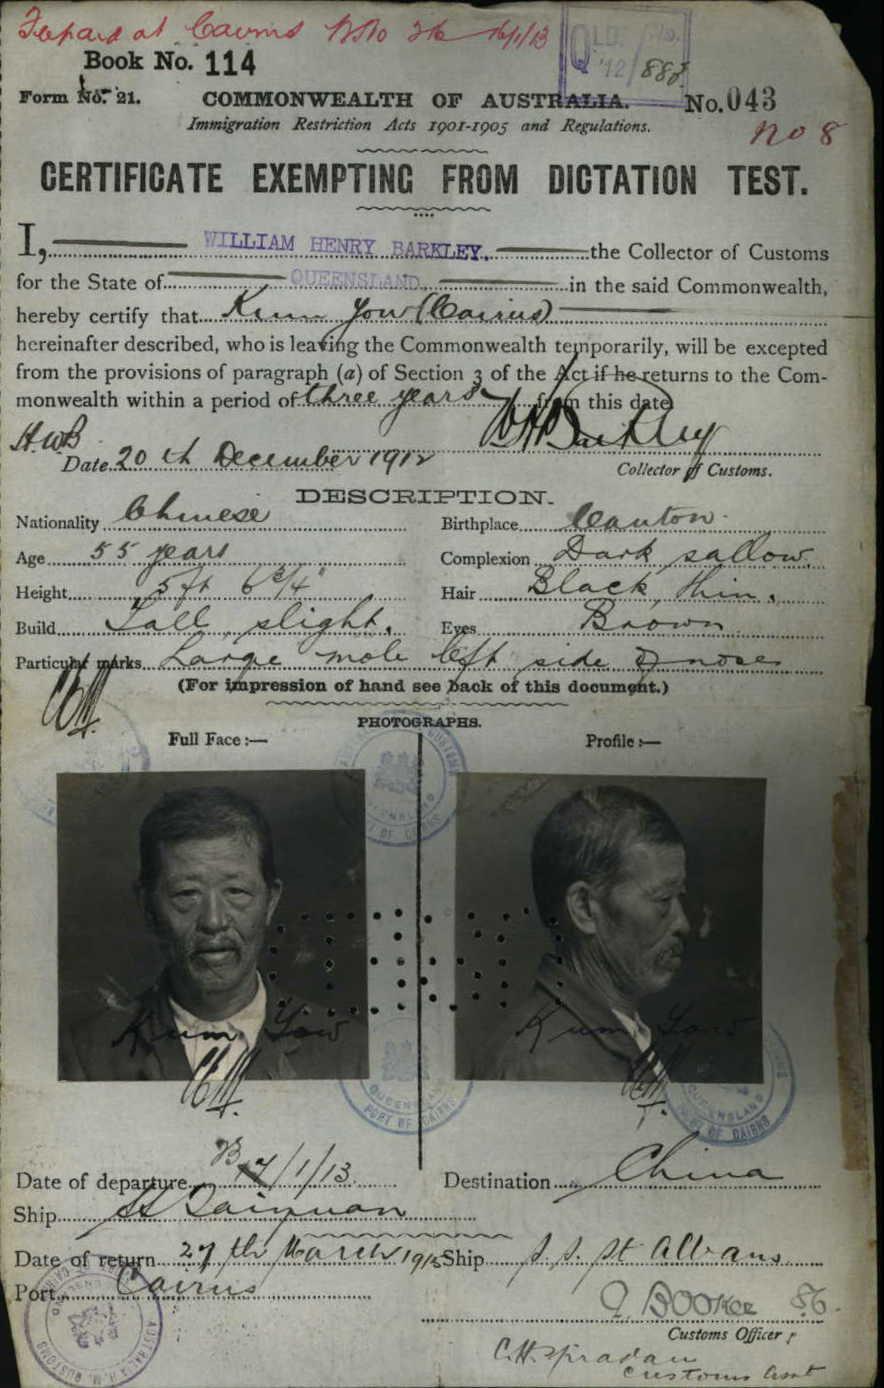 at Cairns 16/1/13
QLD.
'12/888
Book No. 114
Form No. 21.
COMMONWEALTH OF AUSTRALIA.
No. 043
Immigration Restriction Acts 1901-1905 and Regulations.
No 8
CERTIFICATE EXEMPTING FROM DICTATION TEST.
I, WILLIAM HENRY BARKLEY, the Collector of Customs
for the State of QUEENSLAND, in the said Commonwealth,
hereby certify that Kum Yow (Cairns)
hereinafter described, who is leaving the Commonwealth temporarily, will be excepted
from the provisions of paragraph (a) of Section 3 of the Act if he returns to the Com-
monwealth within a period of three years from this date
H.W.B. W H Barkley
Date 20th December 1912 Collector of Customs.
DESCRIPTION.
Nationality Chinese Birthplace Canton
Age 55 years Complexion Dark sallow.
Height 5 ft 6¾" Hair Black, thin.
Build Tall, slight. Eyes Brown
Particular marks Large mole left side of nose
(For impression of hand see back of this document.)
PHOTOGRAPHS.
Full Face :— Profile :—
CUSTOMS
QUEENSLAND
PORT OF CAIRNS
Kum Yow Kum Yow
QUEENSLAND
PORT OF CAIRNS
QUEENSLAND
PORT OF CAIRNS
Date of departure 17/1/13. Destination China
Ship SS Taiyuan
Date of return 27th March 1915 Ship S.S. St Albans
Port Cairns
AUSTRALIA H.M. CUSTOMS
Customs Officer
C.H.
Customs Asst